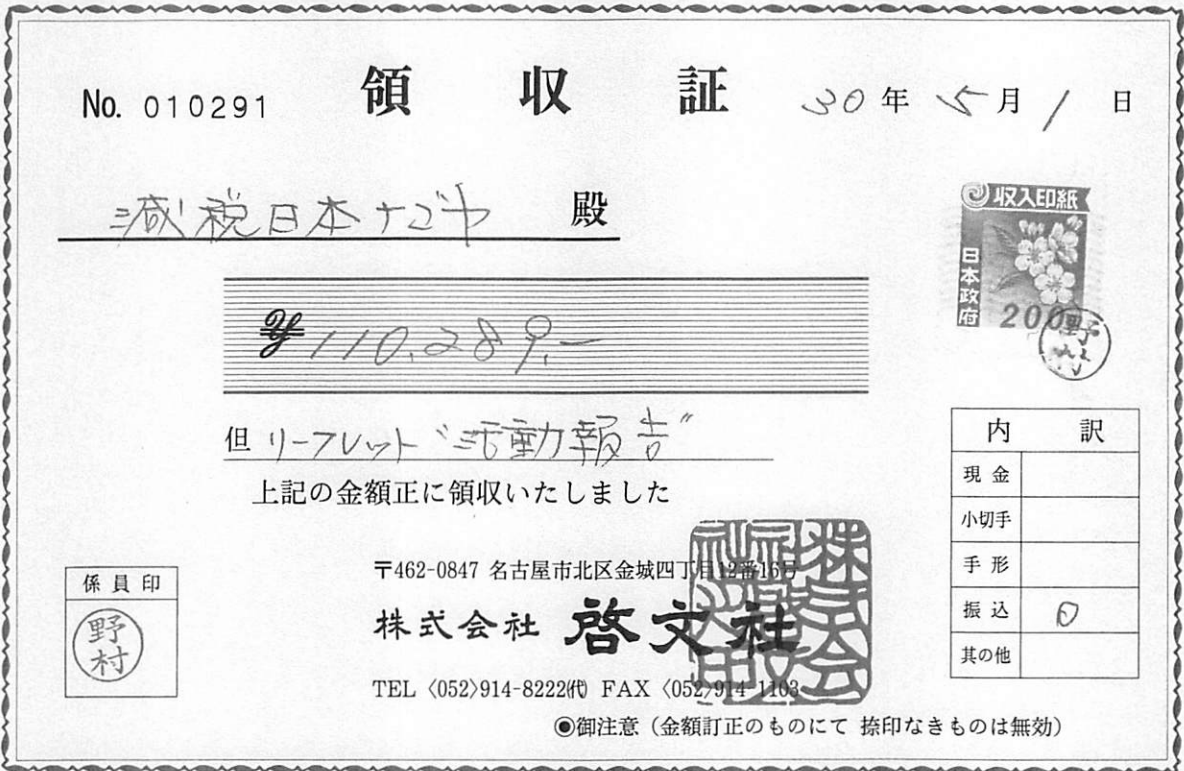 No. 010291 領収証 30年5月1日
減税日本ナゴヤ 殿
収入印紙
日本政府
200
野村
¥110,289.-
但 リーフレット“活動報告”
上記の金額正に領収いたしました
内訳
現金
小切手
手形
振込 〇
其の他
係員印
野村
〒462-0847 名古屋市北区金城四丁目12番16号
株式会社 啓文社
TEL〈052〉914-8222㈹ FAX〈052〉914-1103
◉御注意(金額訂正のものにて 捺印なきものは無効)